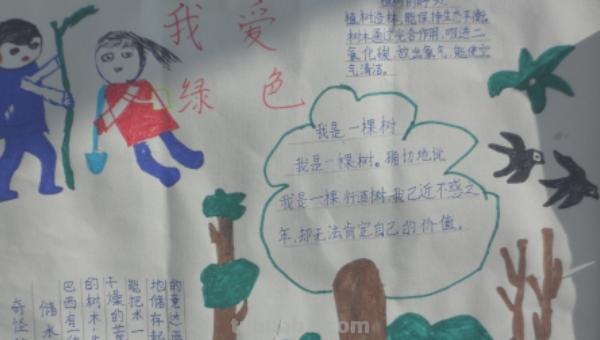 我爱
绿色
植树造林,能保持生态平衡。
树木通过光合作用,吸进二
氧化碳,放出氧气,能使空
气清洁。
我是一棵树
我是一棵树。确切地说
我是一棵行道树,我已近不惑之
年,却无法肯定自己的价值。
地储存起
能把水一
干燥的
的树木,生
巴西有
储水
奇怪